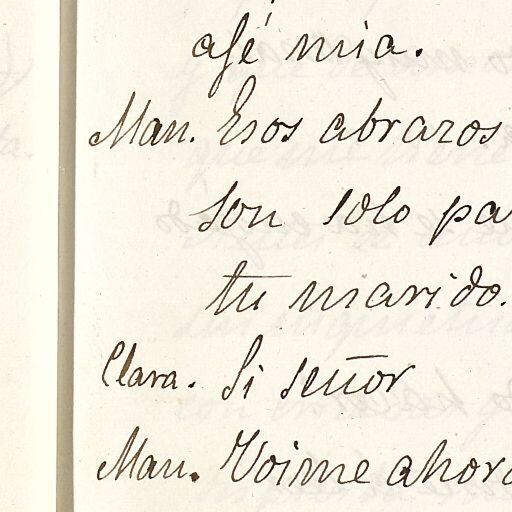 afé mia.
Man. Esos abrazos
son solo pa
tu marido.
Clara. Si señor
Man. Voime ahora